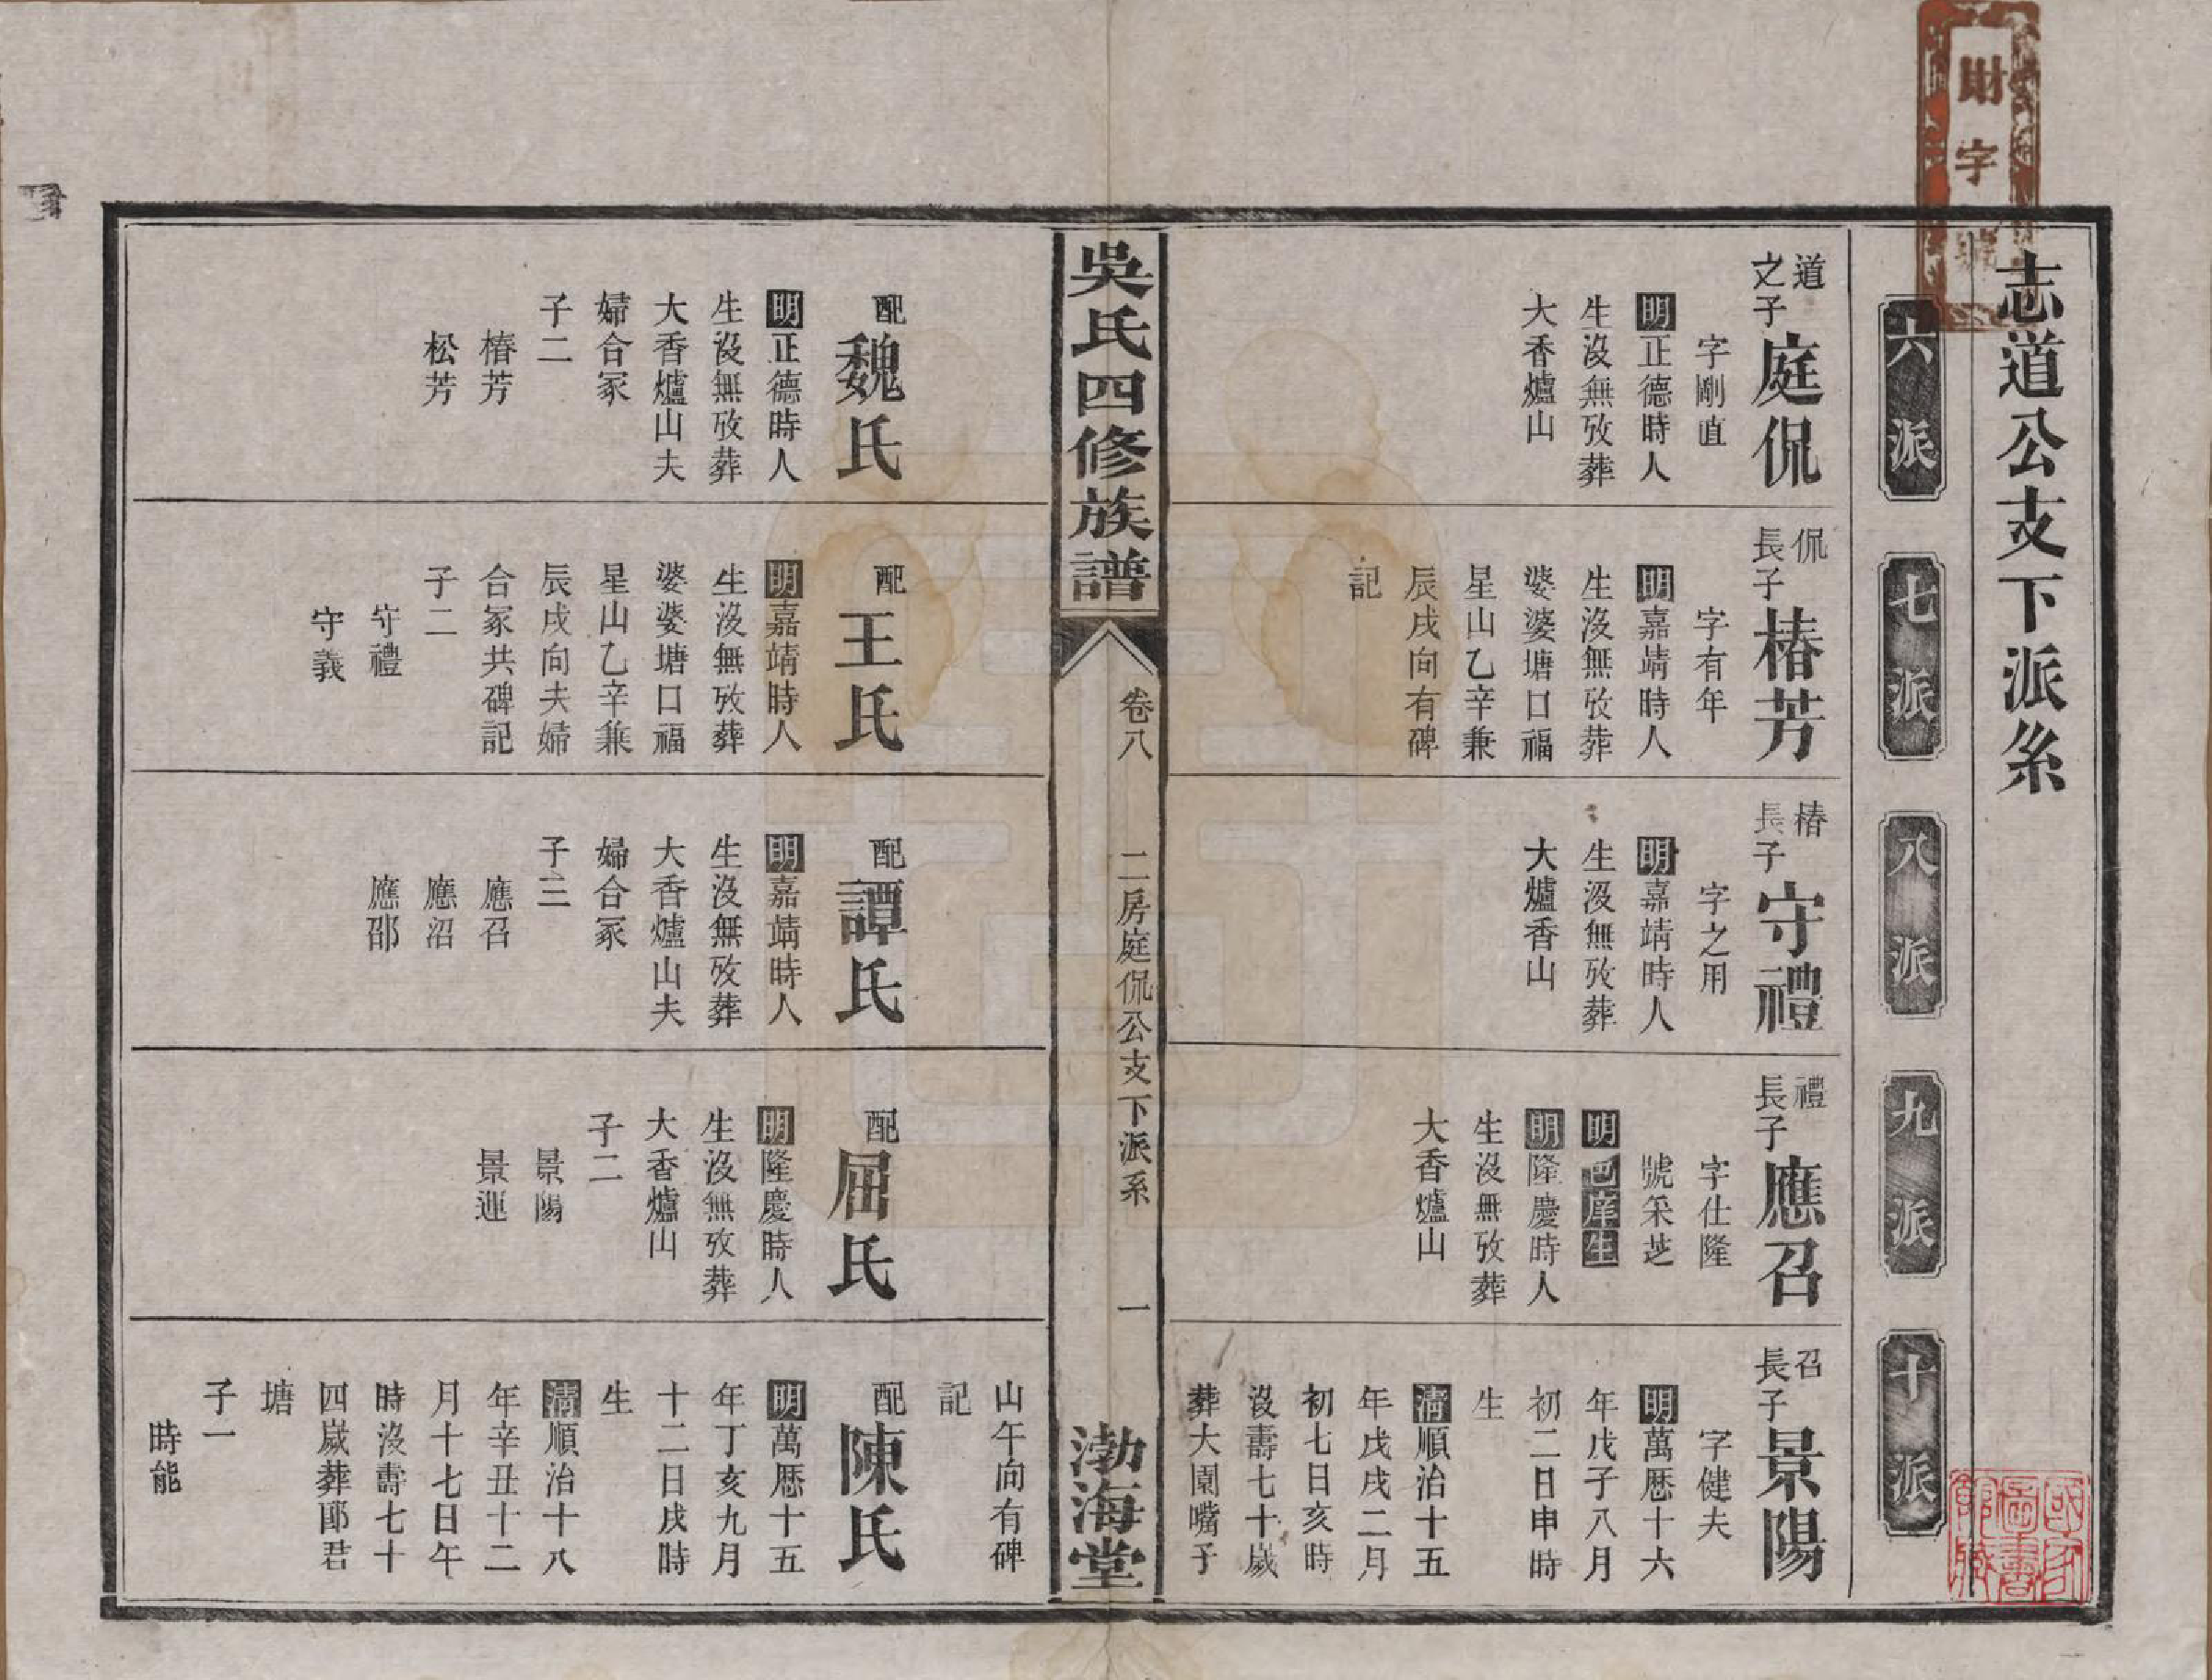 財字號
志道公支下派系
六派
七派
八派
九派
十派
道文子
庭侃
字剛直
明正德時人
生沒無攷葬
大香爐山
侃長子
椿芳
字有年
明嘉靖時人
生沒無攷葬
婆婆塘口福
星山乙辛兼
辰戌向有碑
記
椿長子
守禮
字之用
明嘉靖時人
生沒無攷葬
大爐香山
禮長子
應召
字仕隆
號采芝
明邑庠生
明隆慶時人
生沒無攷葬
大香爐山
召長子
景陽
字健夫
明萬曆十六
年戊子八月
初二日申時
生
清順治十五
年戊戌二月
初七日亥時
沒壽七十歲
葬大園嘴子
吳氏四修族譜
卷八
二房庭侃公支下派系
一
渤海堂
配魏氏
明正德時人
生沒無攷葬
大香爐山夫
婦合冢
子二
椿芳
松芳
配王氏
明嘉靖時人
生沒無攷葬
婆婆塘口福
星山乙辛兼
辰戌向夫婦
合冢共碑記
子二
守禮
守義
配譚氏
明嘉靖時人
生沒無攷葬
大香爐山夫
婦合冢
子三
應召
應沼
應邵
配屈氏
明隆慶時人
生沒無攷葬
大香爐山
子二
景陽
景運
山午向有碑
記
配陳氏
明萬曆十五
年丁亥九月
十二日戌時
生
清順治十八
年辛丑十二
月十七日午
時沒壽七十
四歲葬郎君
塘
子一
時能